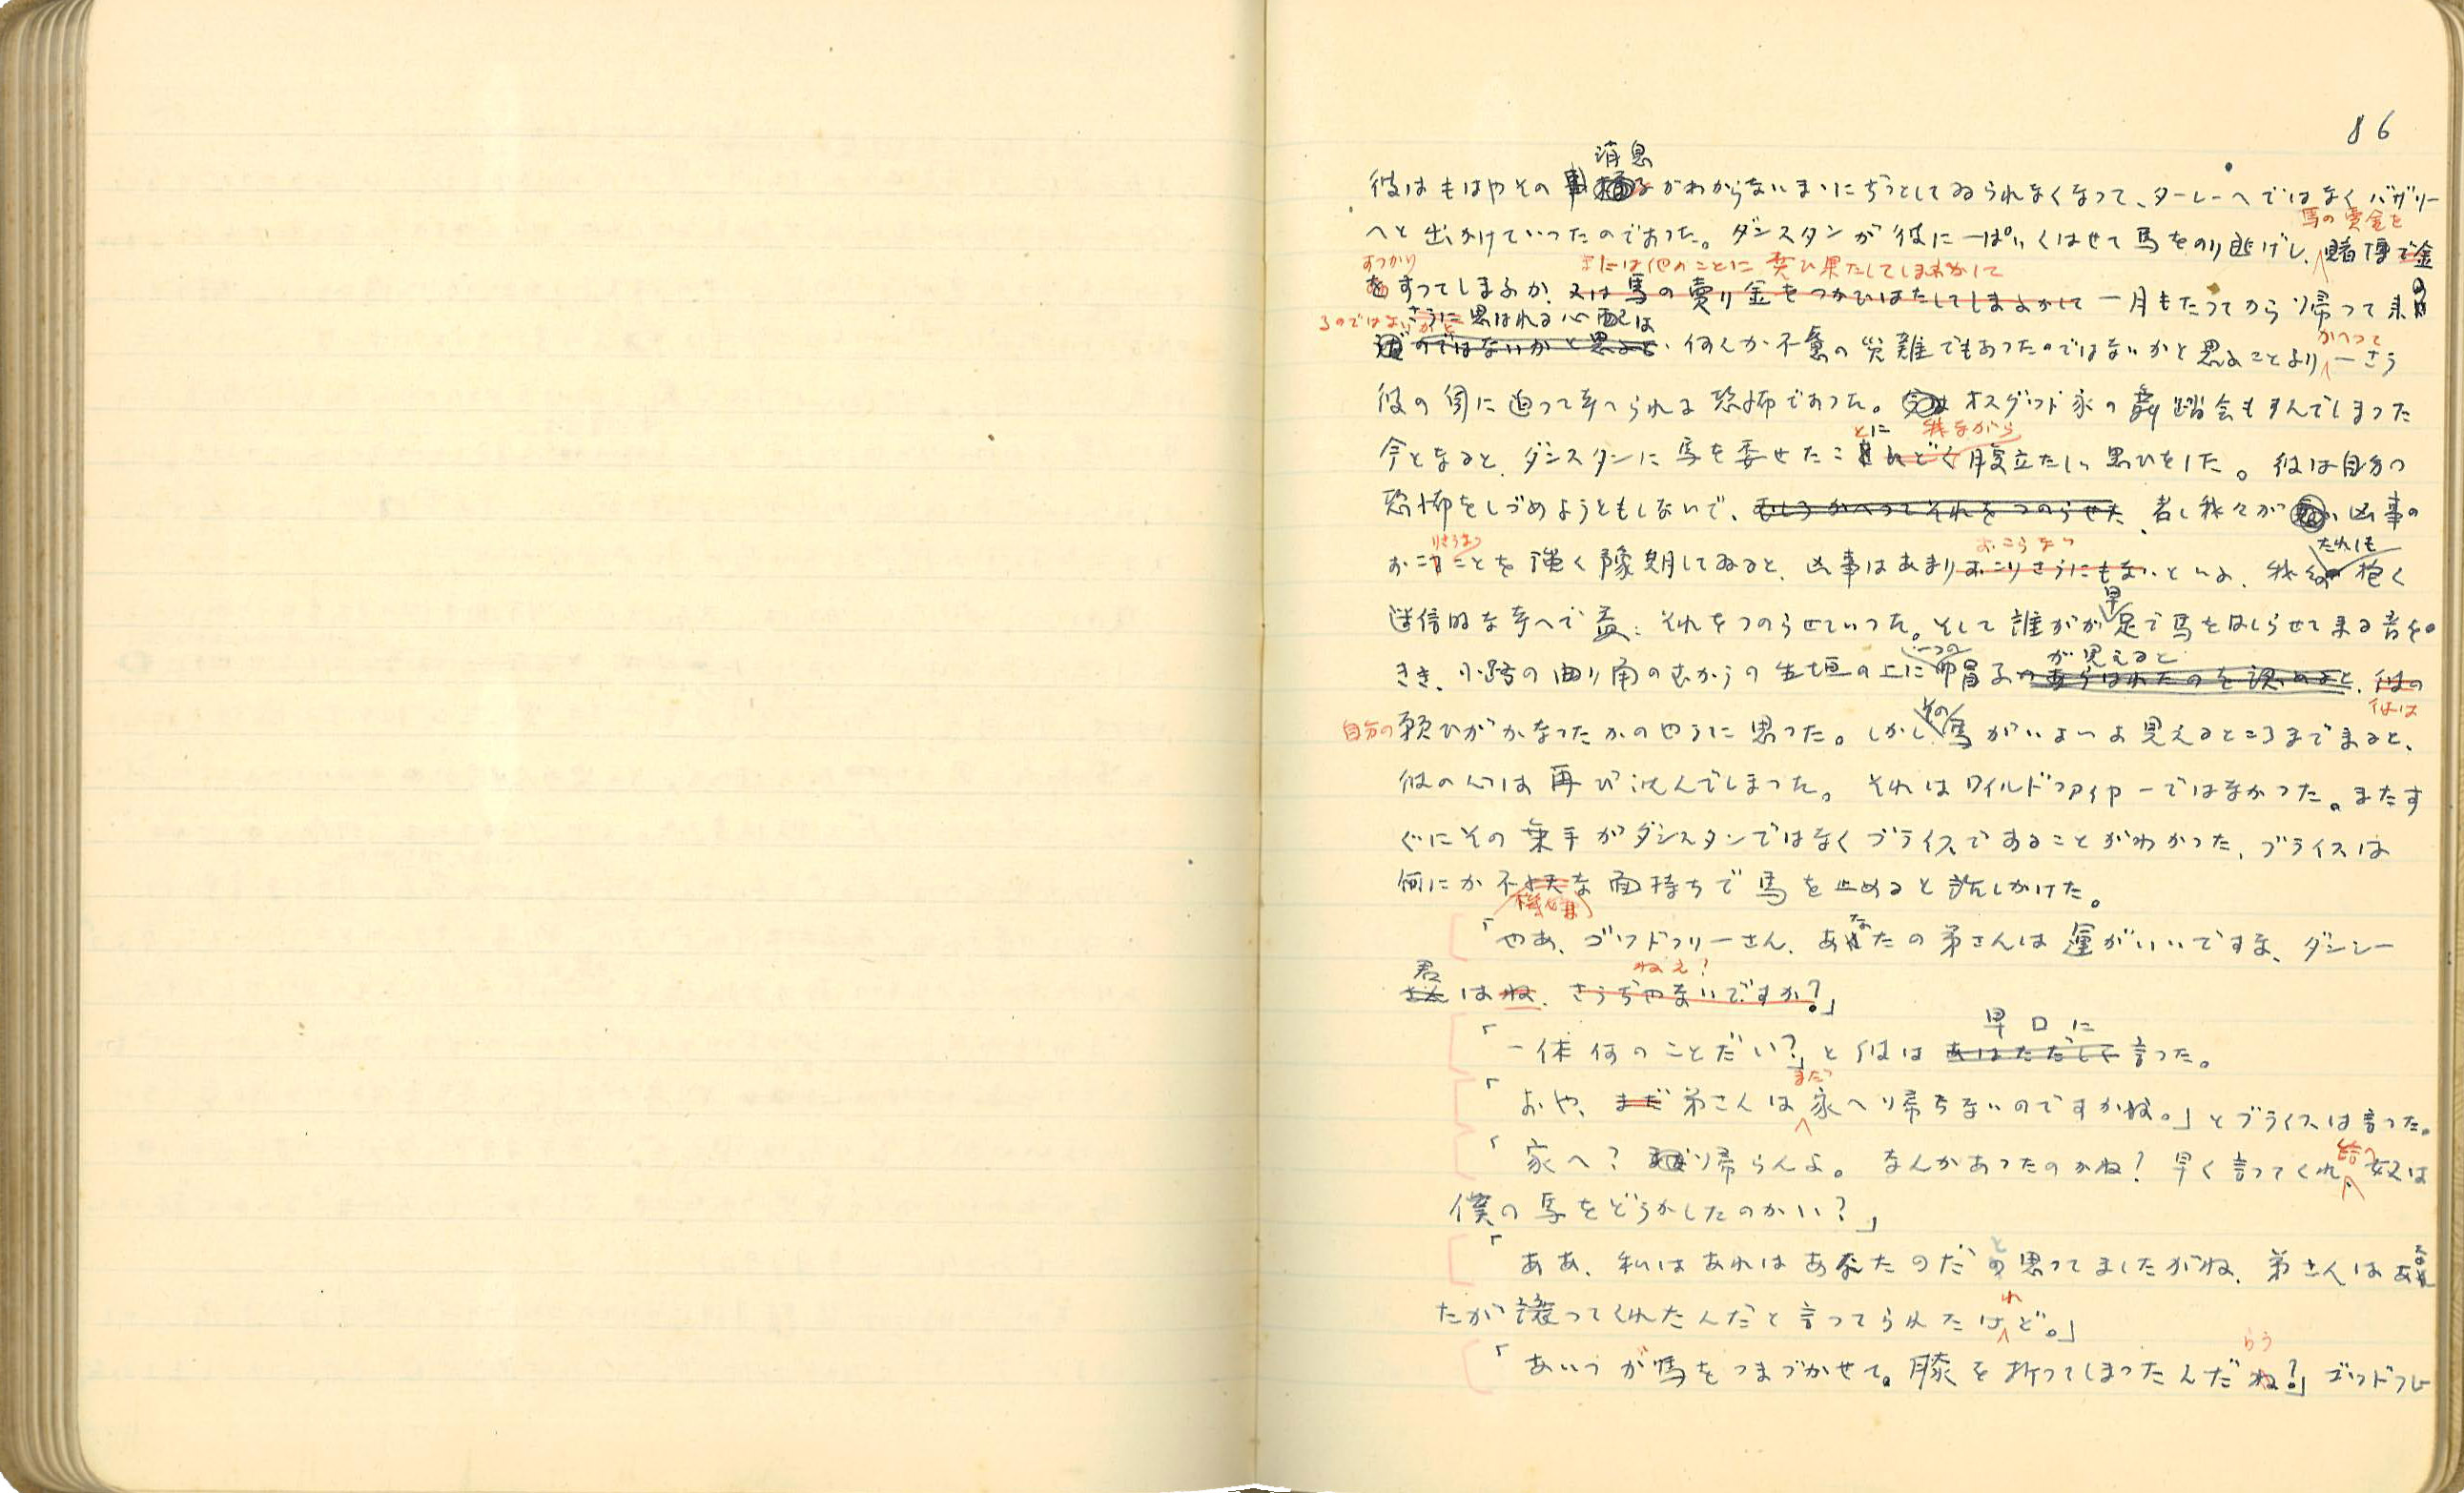 86
消息
彼はもはやその がわからないまゝにぢつとしてゐられなくなつて、ターレーへではなくバザリー
馬の賣金を
へと出かけていつたのであつた。ダンスタンが彼に一ぱいくはせて馬をのり逃げし、賭博で金
すつかり または他のことに 果たしてしまふかして
をすつてしまふか、又は馬の賣り金をつかひはたしてしまふかして一月もたつてから帰つて来
るのではないかと さうに思はれる心配は
のではないかと思ふと、何んか不意の災難でもあつたのではないかと思ふことより一さう
かへつて
彼の身に迫つて考へられる恐怖であつた。オスグッド家の舞踏会もすんでしまつた
とに 我ながら
今となると、ダンスタンに馬を委せたこ ひどく腹立たしい思ひをした。彼は自分の
恐怖をしづめようともしないで、むしろかへつてそれをつのらせた、若し我々が 凶事の
りさうな おこらない たれしも
おこることを強く豫期してゐると、凶事はあまりおこりさうにもないといふ、我々 抱く
早
迷信的な考へで益々それをつのらせていつた。そして誰かが足で馬をはしらせて来る音を
一つの が見えると
きき、小路の曲り角のむかうの生垣の上に帽子のあらはれたのを認めると、彼の
その 彼は
自分の願ひがかなつたかのやうに思つた。しかし馬がいよいよ見えるところまで来ると、
彼の心は再び沈んでしまつた。それはワイルドファイヤーではなかつた。またす
ぐにその乗手がダンスタンではなくブライスであることがわかつた、ブライスは
何にか不快な面持ちで馬を止めると話しかけた。
機嫌
「やあ、ゴッドフリーさん、あなたの弟さんは運がいいですな、ダンシー
君 ねえ?
さんはね、さうぢやないですか?」
早口に
「一体何のことだい?」と彼はあはただしく言つた。
まだ
「おや、まだ弟さんは家へ帰らないのですかね。」とブライスは言つた。
給へ
「家へ? 帰らんよ。なんかあつたのかね? 早く言つてくれ、奴は
僕の馬をどうかしたのかい?」
と
「ああ、私はあれはあなたのだ 思つてましたがね、弟さんはあな
れ
たが譲つてくれたんだと言つてられたけど。」
らう
「あいつが馬をつまづかせて、膝を折つてしまつたんだね?」ゴッドフレ